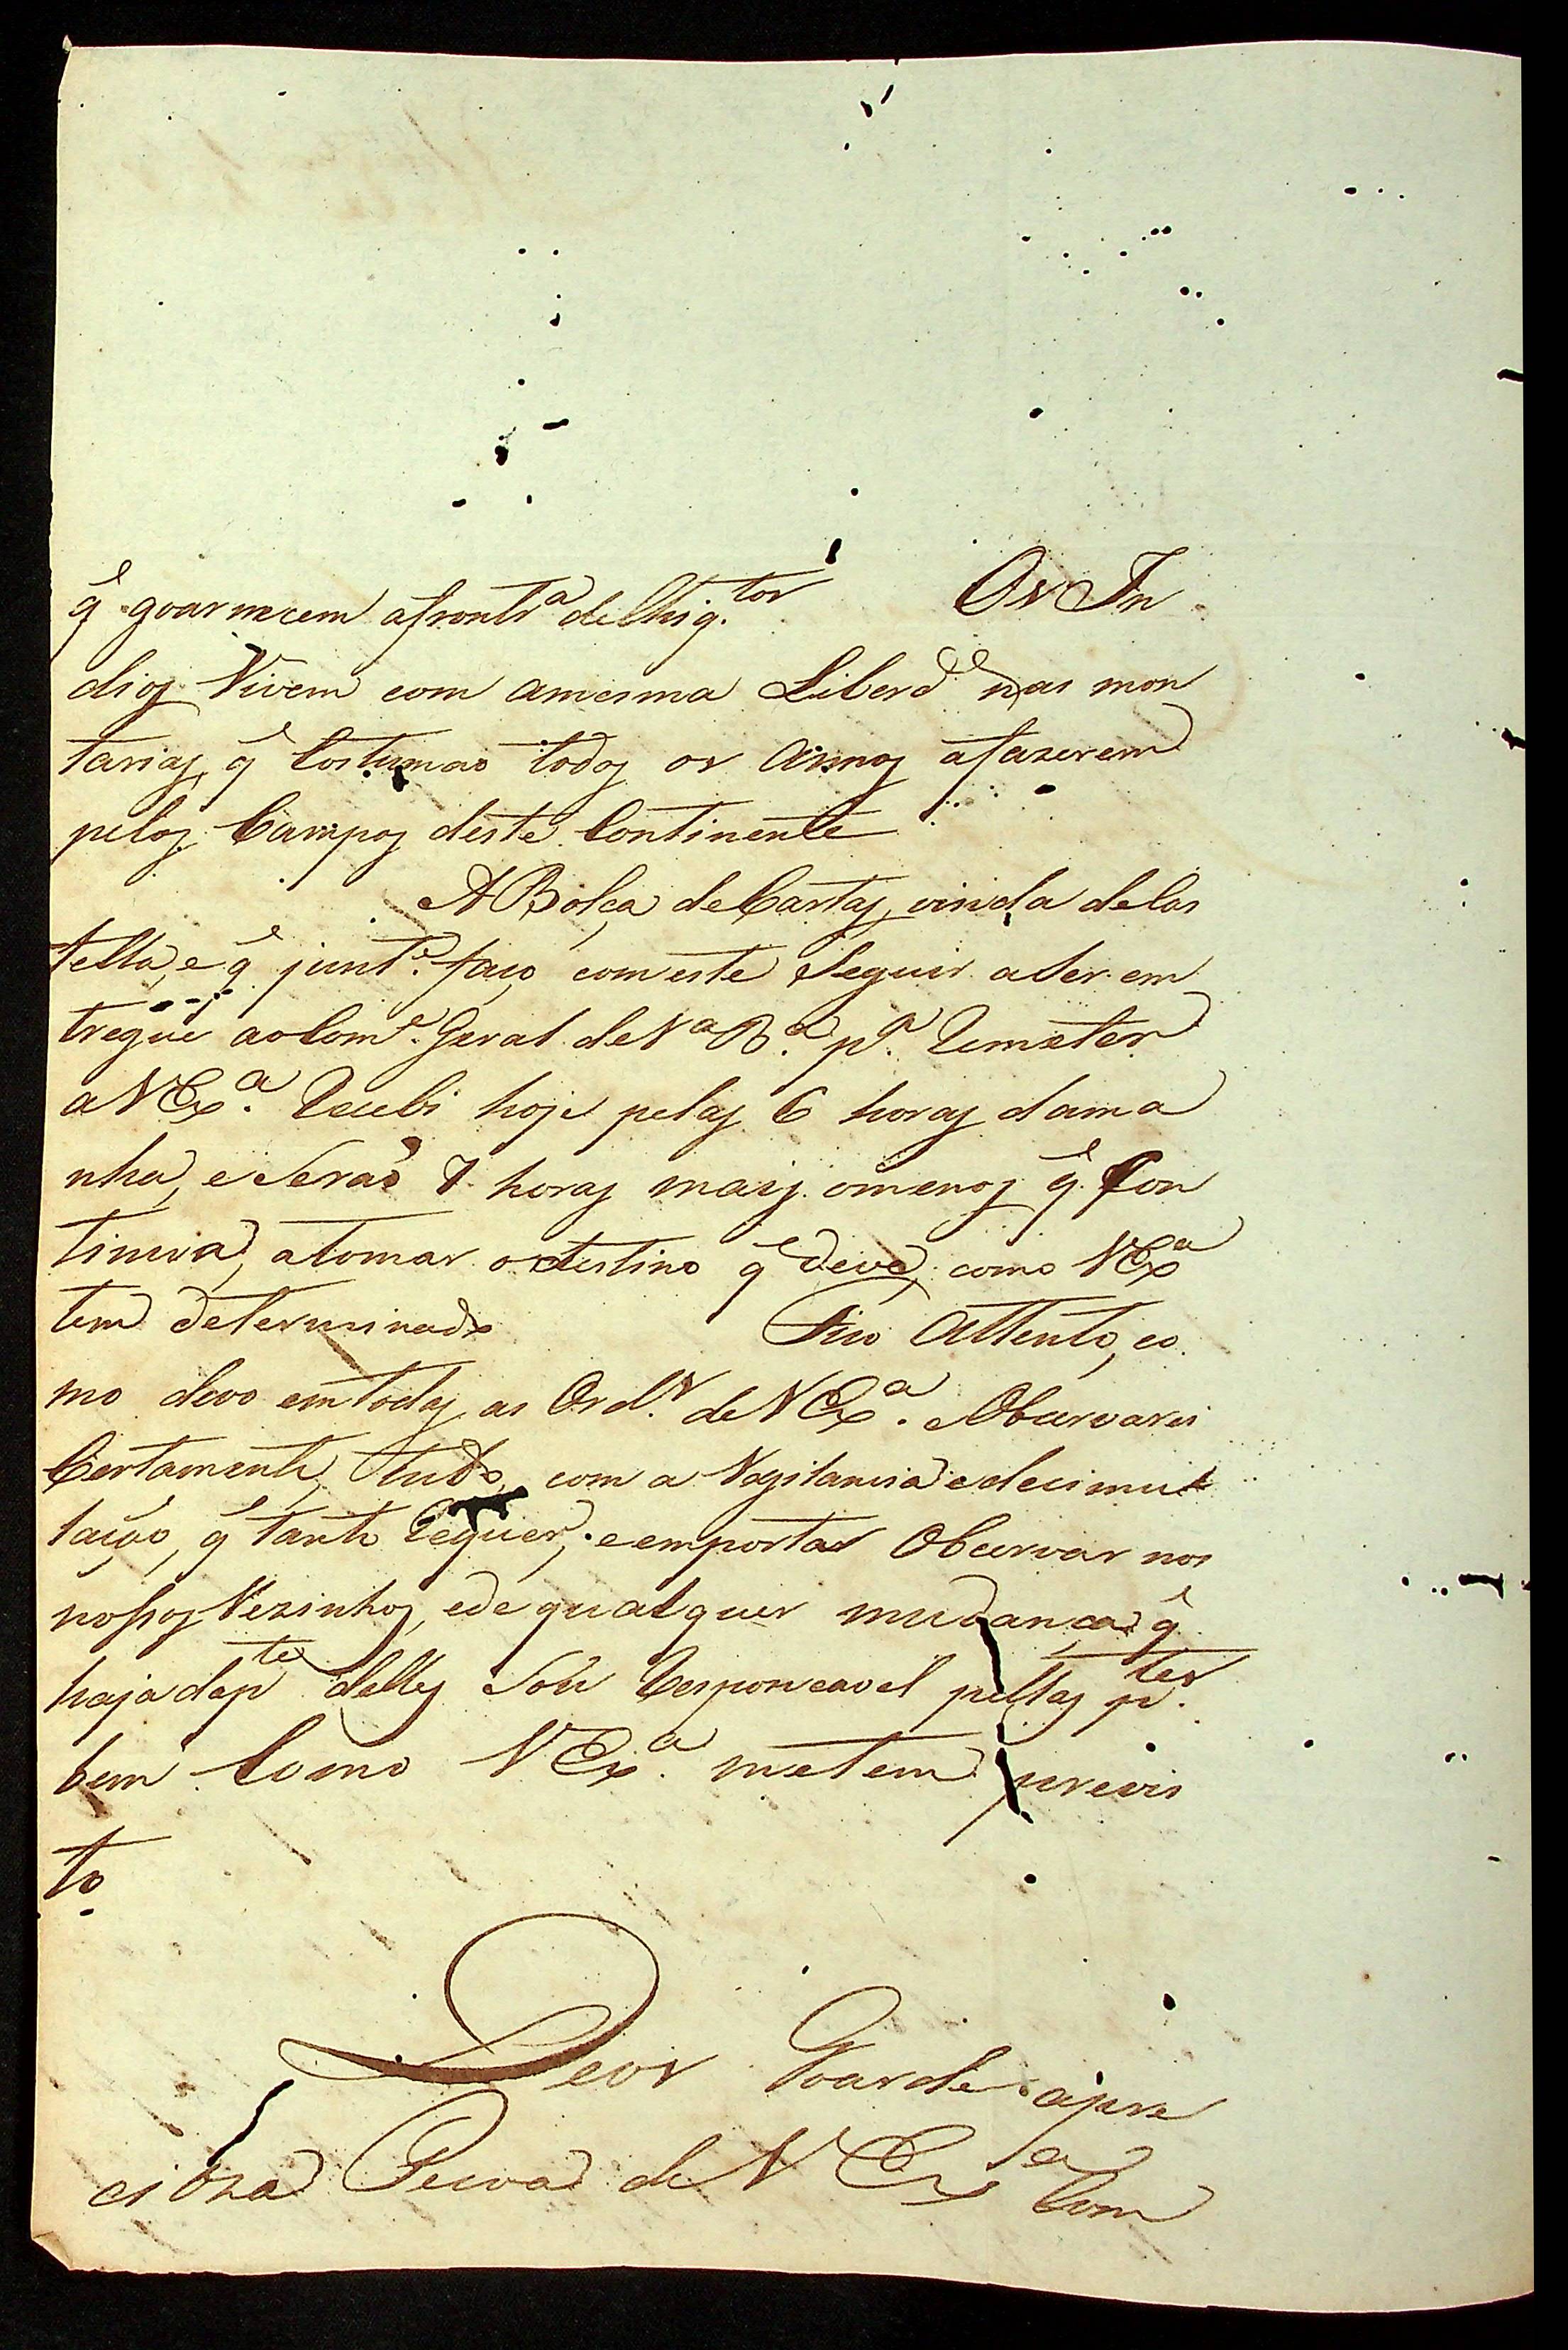 q̃ goarnecem afrontr.ª de Mig.tos Os In
dios Vivem com amesma Liberd.e nas mon
tarias, q̃ Costumaõ todos os Annos afazerem
pelos Campos deste Continente
A Bolça de Cartas, vinda de Cas
tella, e q̃ junt.e faço com este Seguir a Ser em
tregue ao Com.e Geral de V.ª B.ª p.ª Remeter
a V Ex.ª Recebi hoje pelas 6 horas dama
nhã, e Seraõ 7 horas mais, omenos q̃ Con
tinua, atomar odestino q̃ deve, como V Ex.ª
tem determinado Fico Attento, co
mo devo emtodas as Ord.s de V Ex.ª Observarei
Certamente, tudo, com a Vegilancia e decimu
lação, q̃ tanto Requer, e emporta Observar nos
nossos Vezinhos, e de qualquer mudança q̃
haja dap.te delles Sou Responçavel pellas p.tes
bem Como V Ex.ª metem previs
to
Deos Goarde apre
cioza Pecoa de V Ex.ª Com